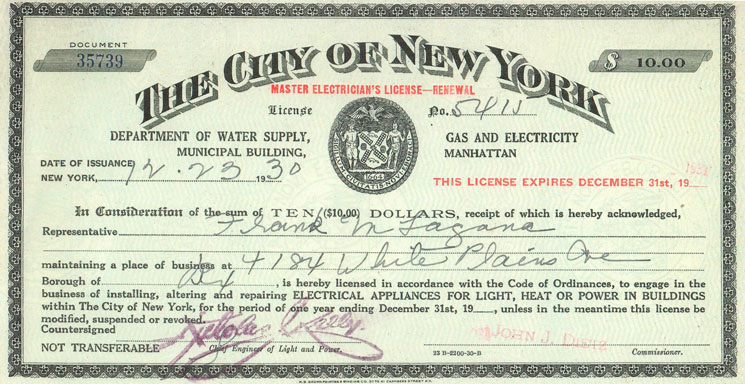 DOCUMENT
35739
THE CITY OF NEW YORK
$ 10.00
MASTER ELECTRICIAN'S LICENSE—RENEWAL
License No. 5415
DEPARTMENT OF WATER SUPPLY, GAS AND ELECTRICITY
MUNICIPAL BUILDING, MANHATTAN
DATE OF ISSUANCE
NEW YORK, 12.23 1930
THIS LICENSE EXPIRES DECEMBER 31st, 19
In Consideration of the sum of TEN ($10.00) DOLLARS, receipt of which is hereby acknowledged,
Representative Frank M Lagana
maintaining a place of business at 4184 White Plains Ave
Borough of Bx, is hereby licensed in accordance with the Code of Ordinances, to engage in the
business of installing, altering and repairing ELECTRICAL APPLIANCES FOR LIGHT, HEAT OR POWER IN BUILDINGS
within The City of New York, for the period of one year ending December 31st, 19, unless in the meantime this license be
modified, suspended or revoked.
Countersigned
JOHN J.
NOT TRANSFERABLE Chief Engineer of Light and Power. 23 B-2200-30-B Commissioner.